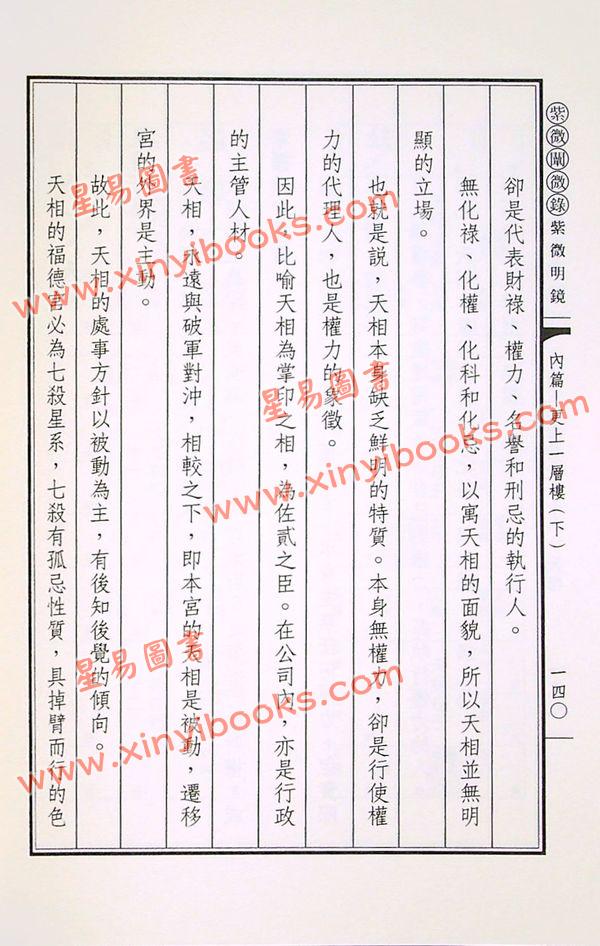 紫微闡微錄 紫微明鏡
內篇—更上一層樓(下)
一四〇
卻是代表財祿、權力、名譽和刑忌的執行人。
無化祿、化權、化科和化忌，以寓天相的面貌，所以天相並無明
顯的立場。
也就是說，天相本身缺乏鮮明的特質。本身無權力，卻是行使權
力的代理人，也是權力的象徵。
因此，比喻天相為掌印之相，為佐貳之臣。在公司內，亦是行政
的主管人材。
天相，永遠與破軍對沖，相較之下，即本宮的天相是被動，遷移
宮的外界是主動。
故此，天相的處事方針以被動為主，有後知後覺的傾向。
天相的福德宮必為七殺星系，七殺有孤忌性質，具掉臂而行的色
星易圖書
www.xinyibooks.com
星易圖書
www.xinyibooks.com
星易圖書
www.xinyibooks.com